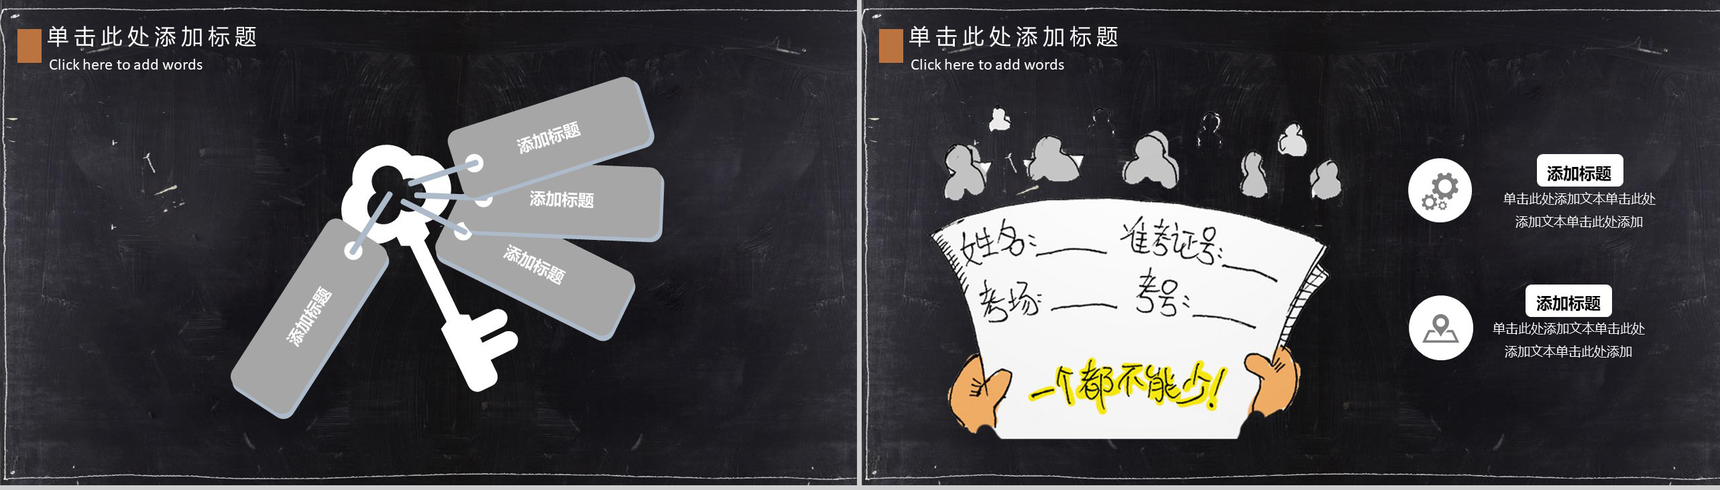 单击此处添加标题
Click here to add words
添加标题
添加标题
添加标题
添加标题
单击此处添加标题
Click here to add words
姓名:____ 准考证号:____
考场:____ 考号:____
一个都不能少!
添加标题
单击此处添加文本单击此处
添加文本单击此处添加
添加标题
单击此处添加文本单击此处
添加文本单击此处添加